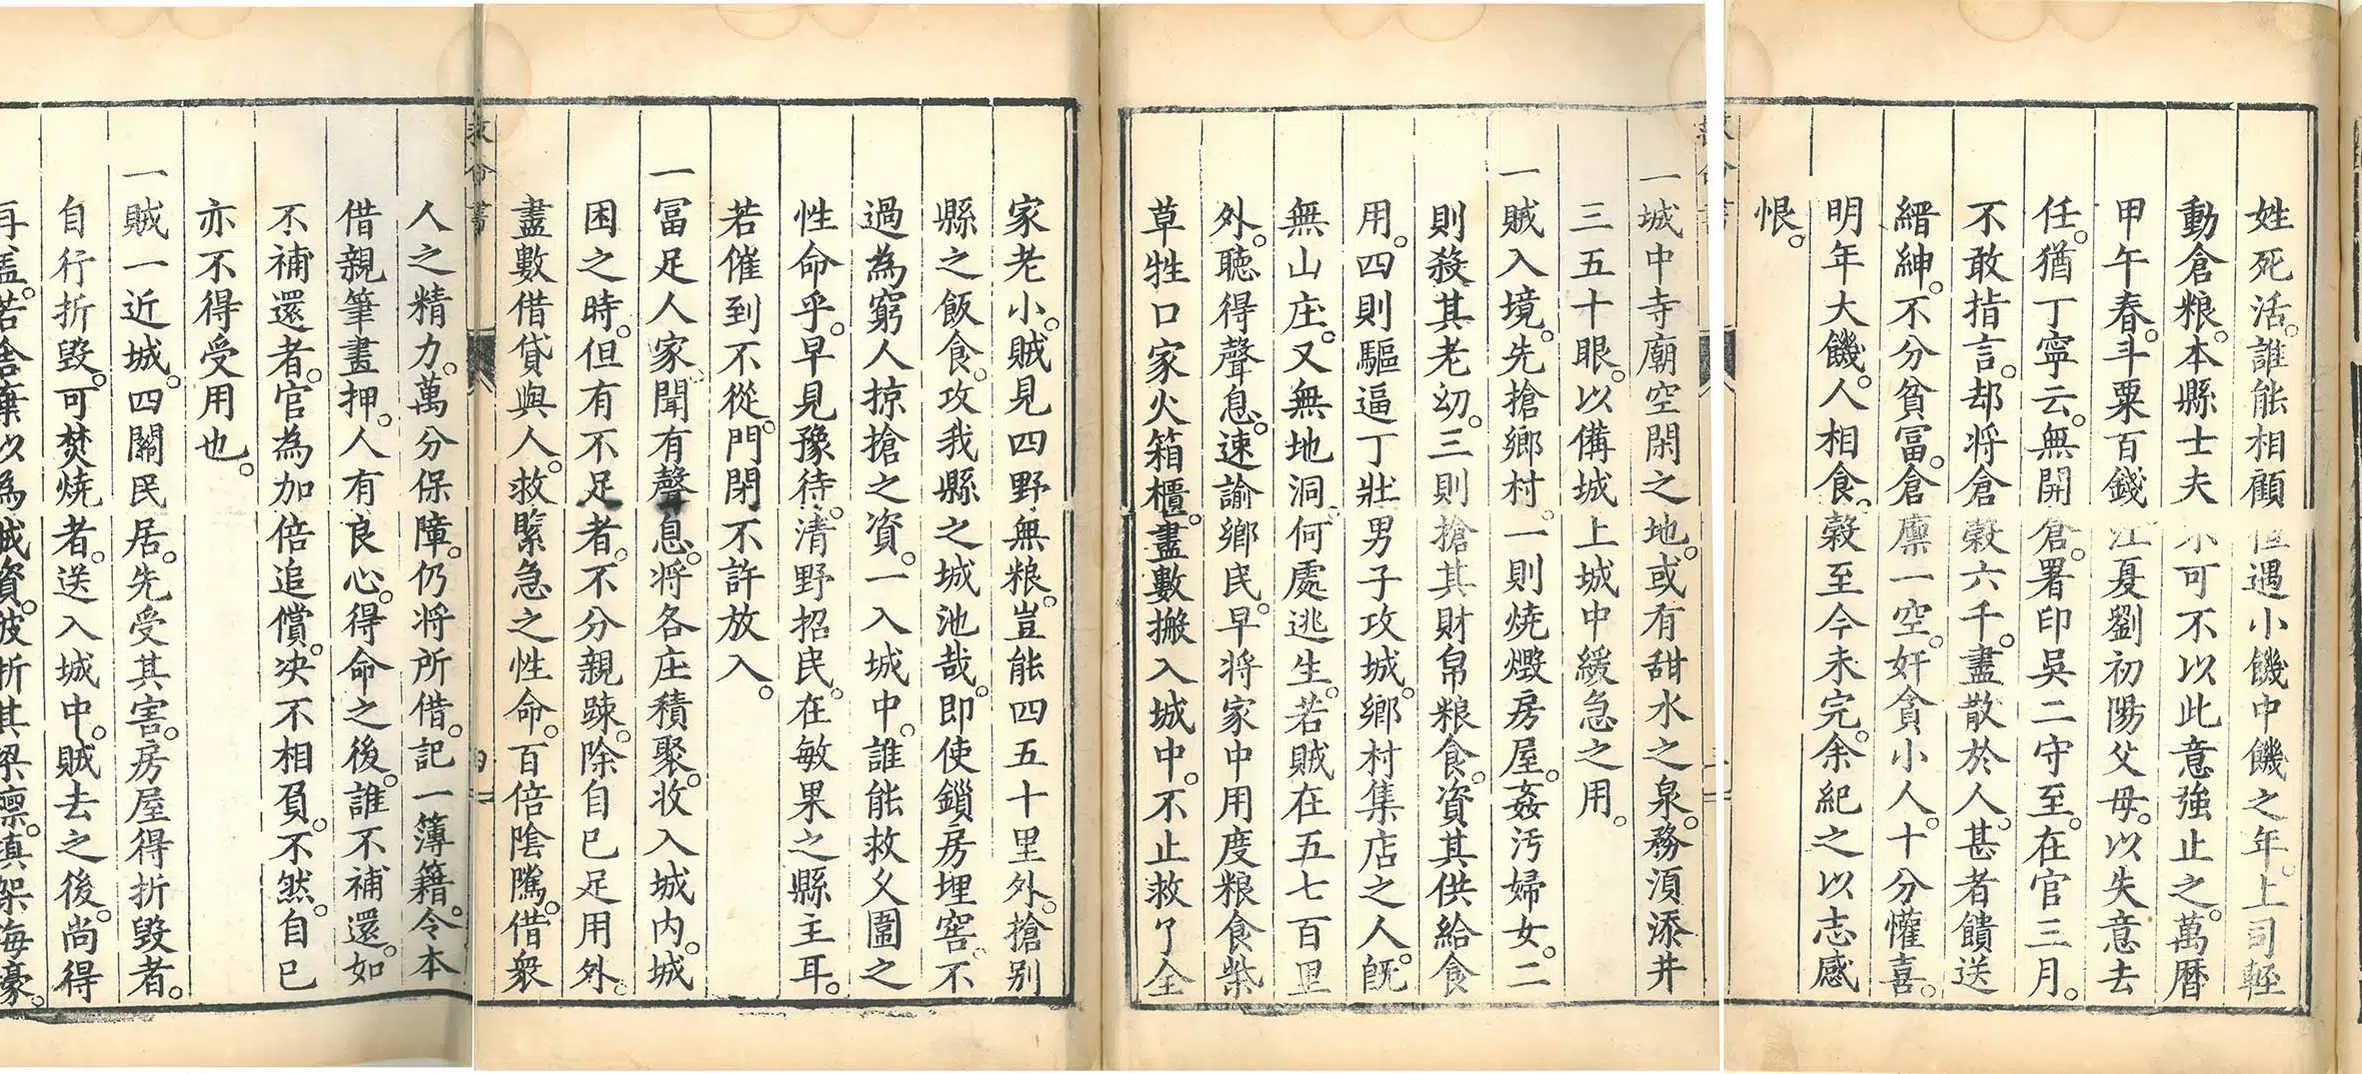 姓死活。誰能相顧。但遇小饑中饑之年。上司輕
動倉粮。本縣士夫不可不以此意強止之。萬曆
甲午春。斗粟百錢。江夏劉初陽父母。以失意去
任。猶丁寧云。無開倉。署印吳二守至。在官三月。
不敢指言。却将倉穀六千。盡散於人。甚者饋送
縉紳。不分貧冨。倉廪一空。奸貪小人。十分懽喜。
明年大饑。人相食。穀至今未完。余紀之以志感
恨。
救命書
一城中寺廟空閑之地。或有甜水之泉。務湏添井
三五十眼。以俻城上城中緩急之用。
一賊入境。先搶鄉村。一則焼燬房屋。姦汚婦女。二
則殺其老㓜。三則搶其財帛粮食。資其供給食
用。四則驅逼丁壯男子攻城。鄉村集店之人。旣
無山庄。又無地洞。何處逃生。若賊在五七百里
外。聴得聲息。速諭鄉民。早将家中用度粮食柴
草牲口家火箱櫃。盡數搬入城中。不止救了全
家老小。賊見四野無粮。豈能四五十里外。搶别
縣之飯食。攻我縣之城池哉。即使鎖房埋窖。不
過為窮人掠搶之資。一入城中。誰能救父圍之
性命乎。早見豫待。清野招民。在敏果之縣主耳。
若催到不從。門閉不許放入。
一冨足人家。聞有聲息。将各庄積聚。收入城内。城
困之時。但有不足者。不分親踈。除自己足用外。
盡數借貸與人。救緊急之性命。百倍陰隲。借衆
救命書
四
人之精力。萬分保障。仍将所借。記一簿籍。令本
借親筆畫押。人有良心。得命之後。誰不補還。如
不補還者。官為加倍追償。决不相負。不然。自己
亦不得受用也。
一賊一近城。四關民居。先受其害。房屋得折毀者。
自行折毀。可焚焼者。送入城中。賊去之後。尚得
再盖。若捨棄以為賊資。彼折其梁檩。填架海豪。